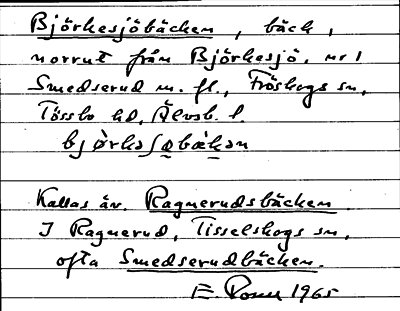 Björkesjöbäcken, bäck,
norrut från Björkesjö, nr 1
Smedserud m. fl., Fröskogs sn,
Tössbo hd, Älvsb. l.
Kallas äv. Ragnerudsbäcken
I Ragnerud, Tisselskogs sn,
ofta Smedserudbäcken.
1965